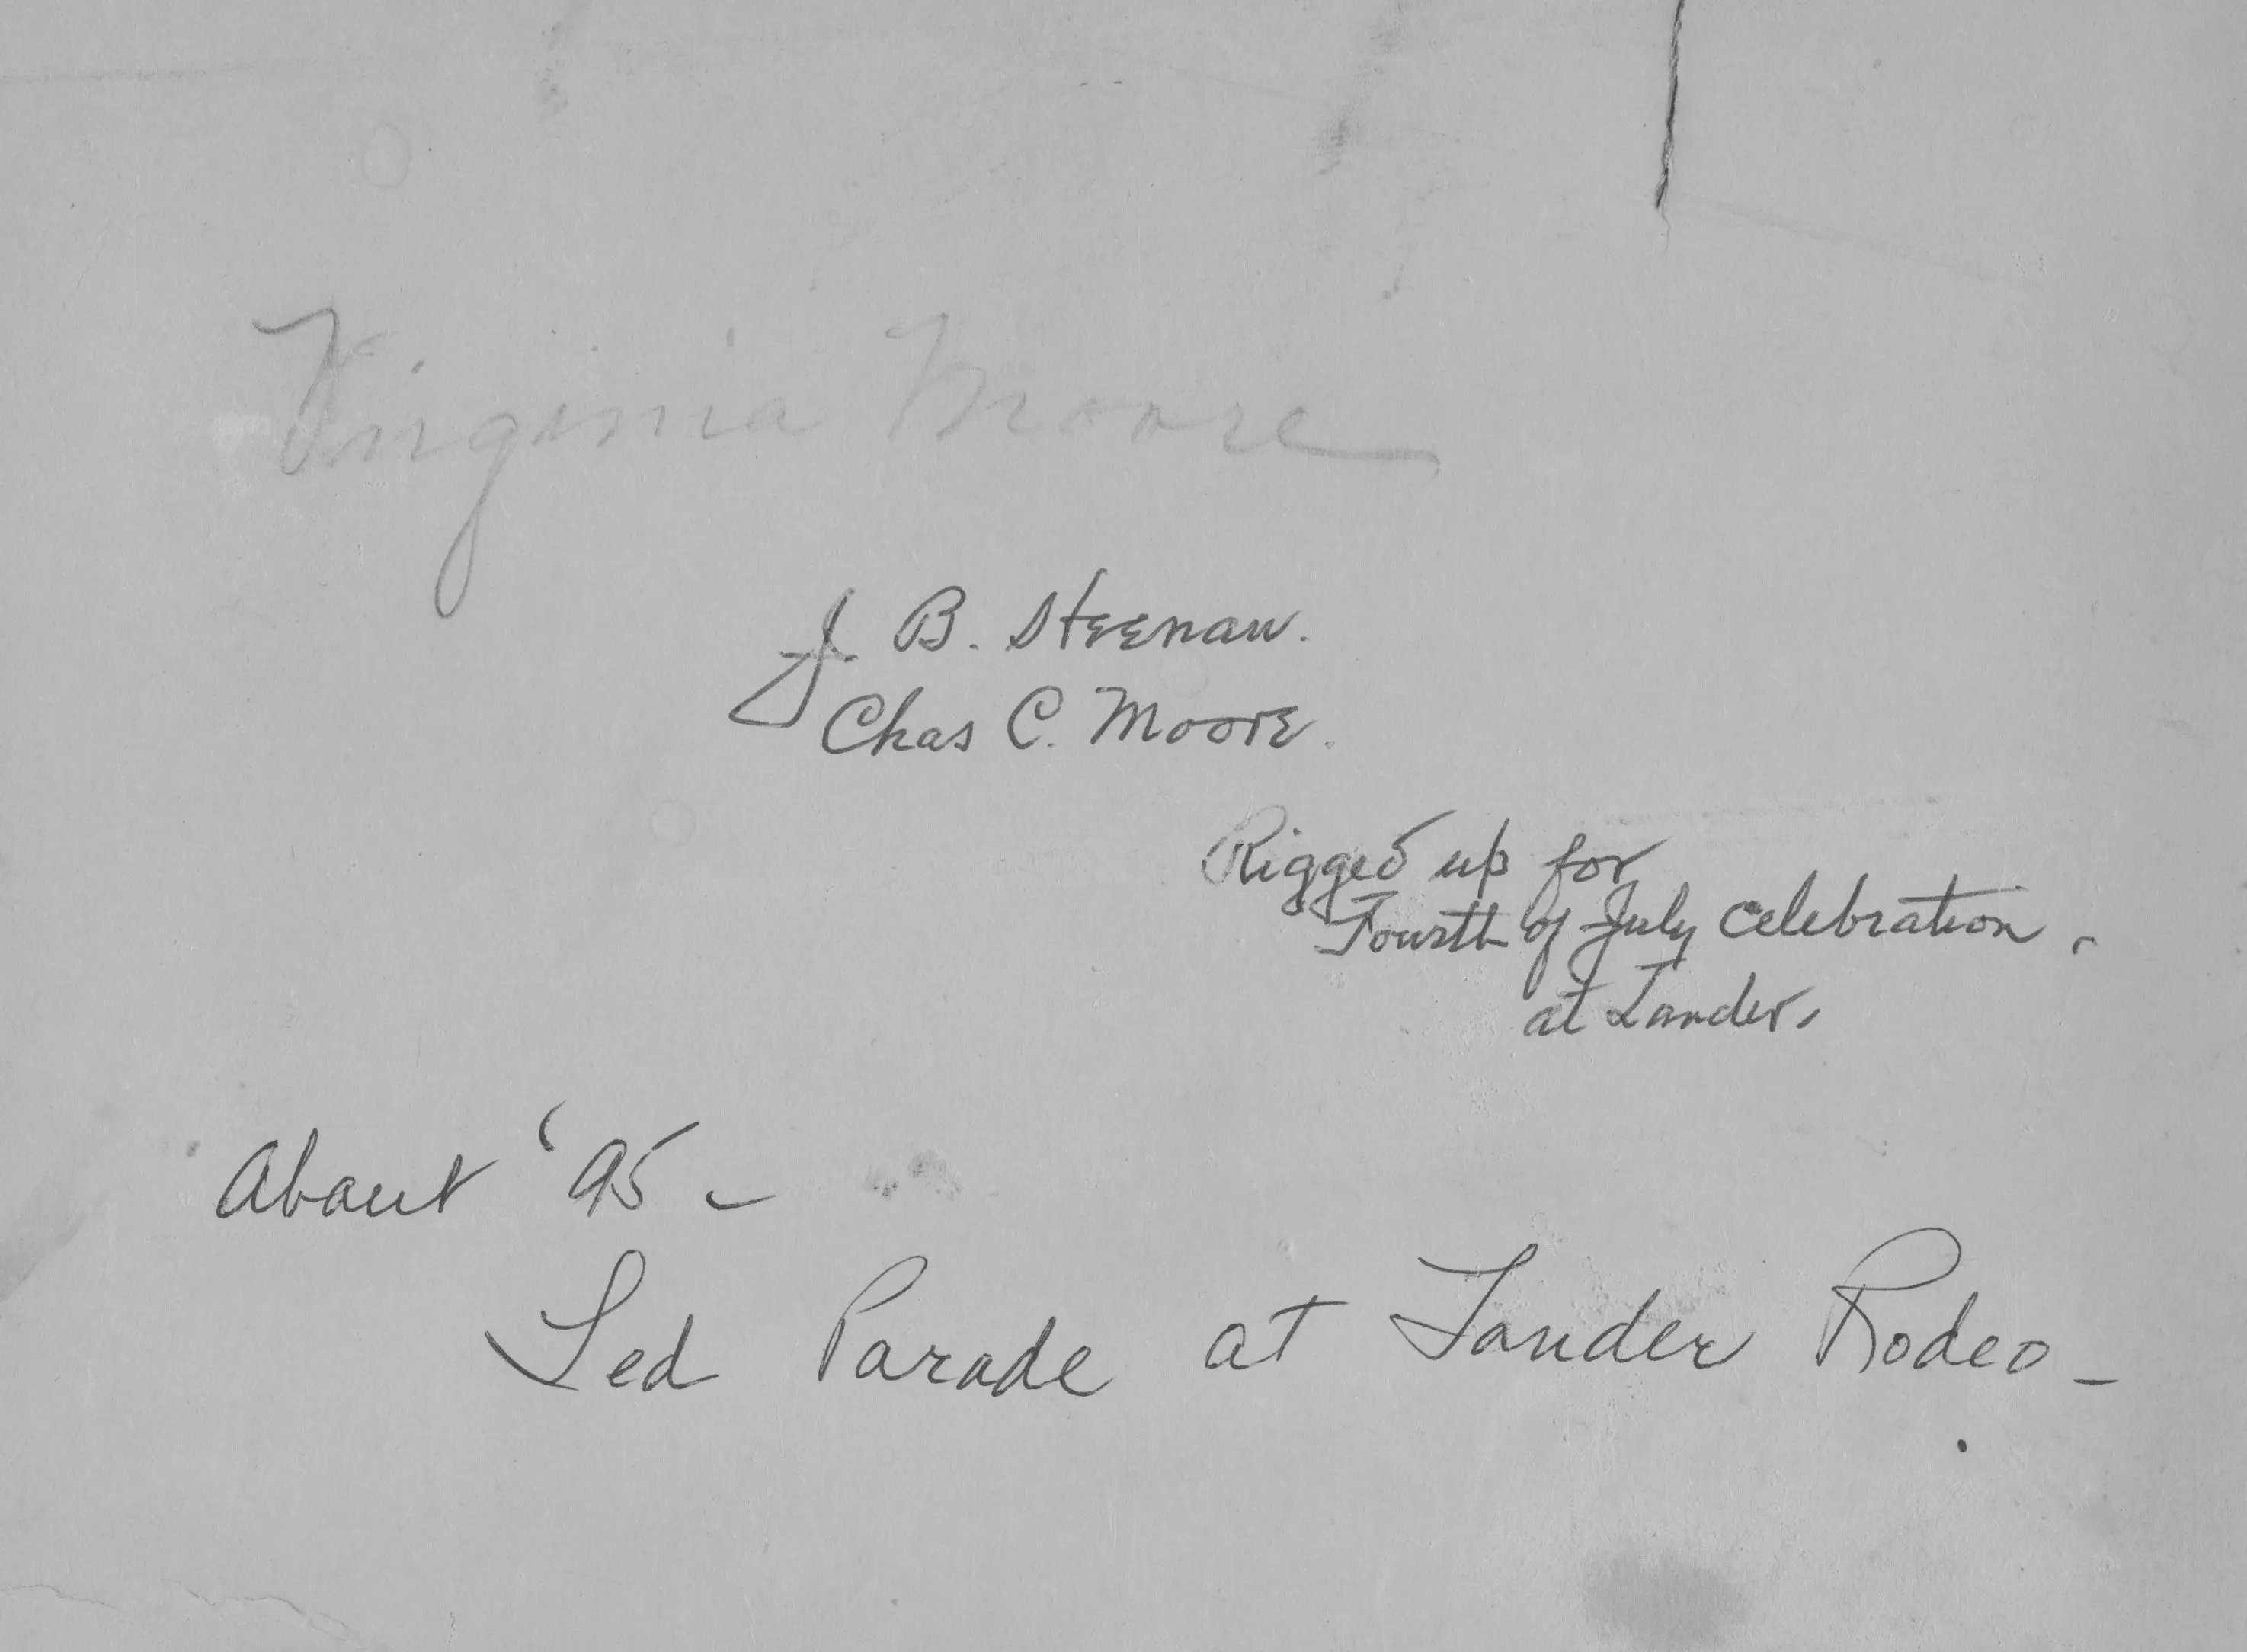 Virginia Moore
J. B. Steenaw.
Chas C. Moore.
Rigged up for
Fourth of July Celebration.
at Lander.
About '95 -
Led Parade at Lander Rodeo -